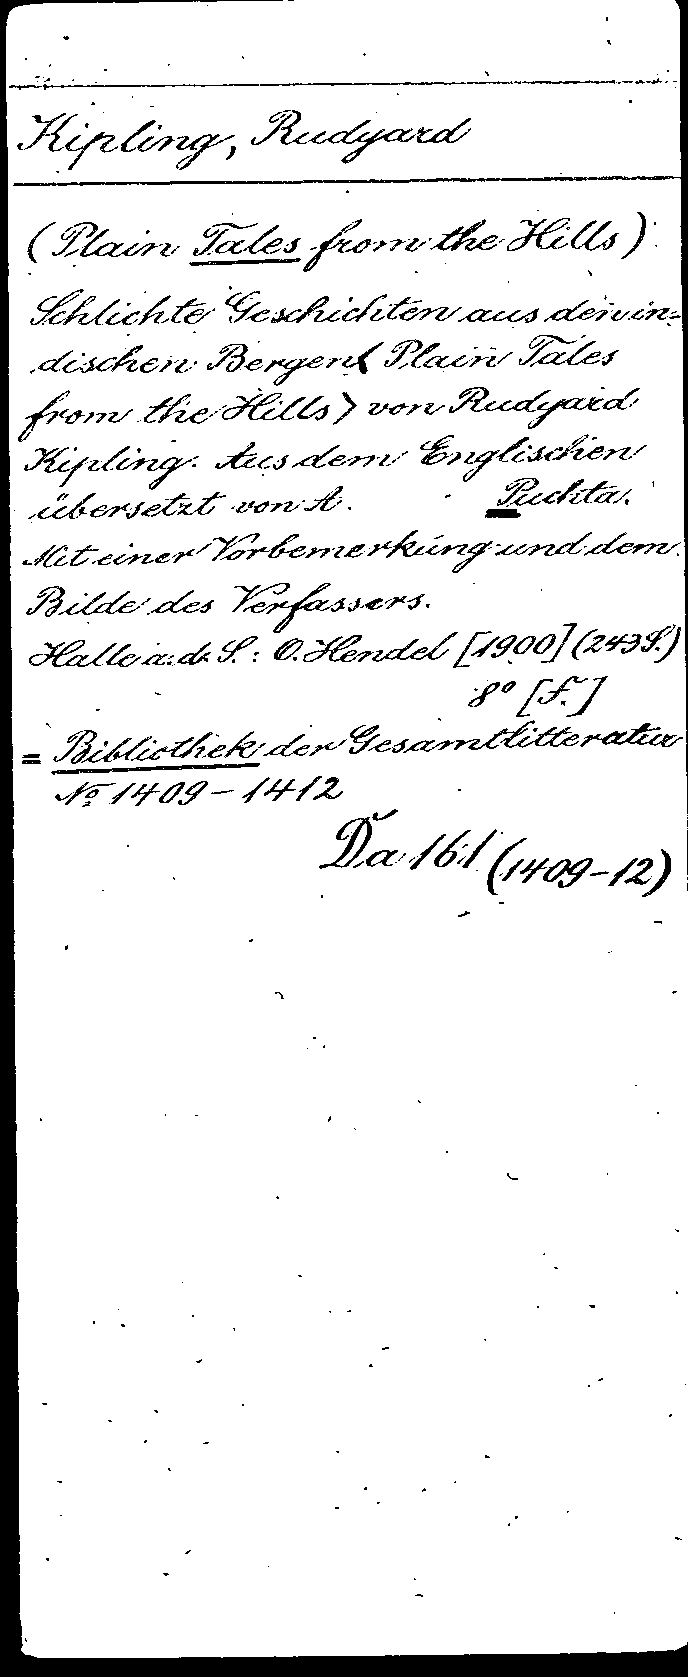 Kipling, Rudyard
(Plain Tales from the Hills)
Schlichte Geschichten aus den in-
dischen Bergen < Plain Tales
from the Hills > von Rudyard
Kipling. Aus dem Englischen
übersetzt von A. Puchta.
Mit einer Vorbemerkung und dem
Bilde des Verfassers.
Halle a. d. S.: O. Hendel [1900] (243 S.)
8° [F.]
= Bibliothek der Gesamtlitteratur
No 1409-1412
Da 161 (1409-12)